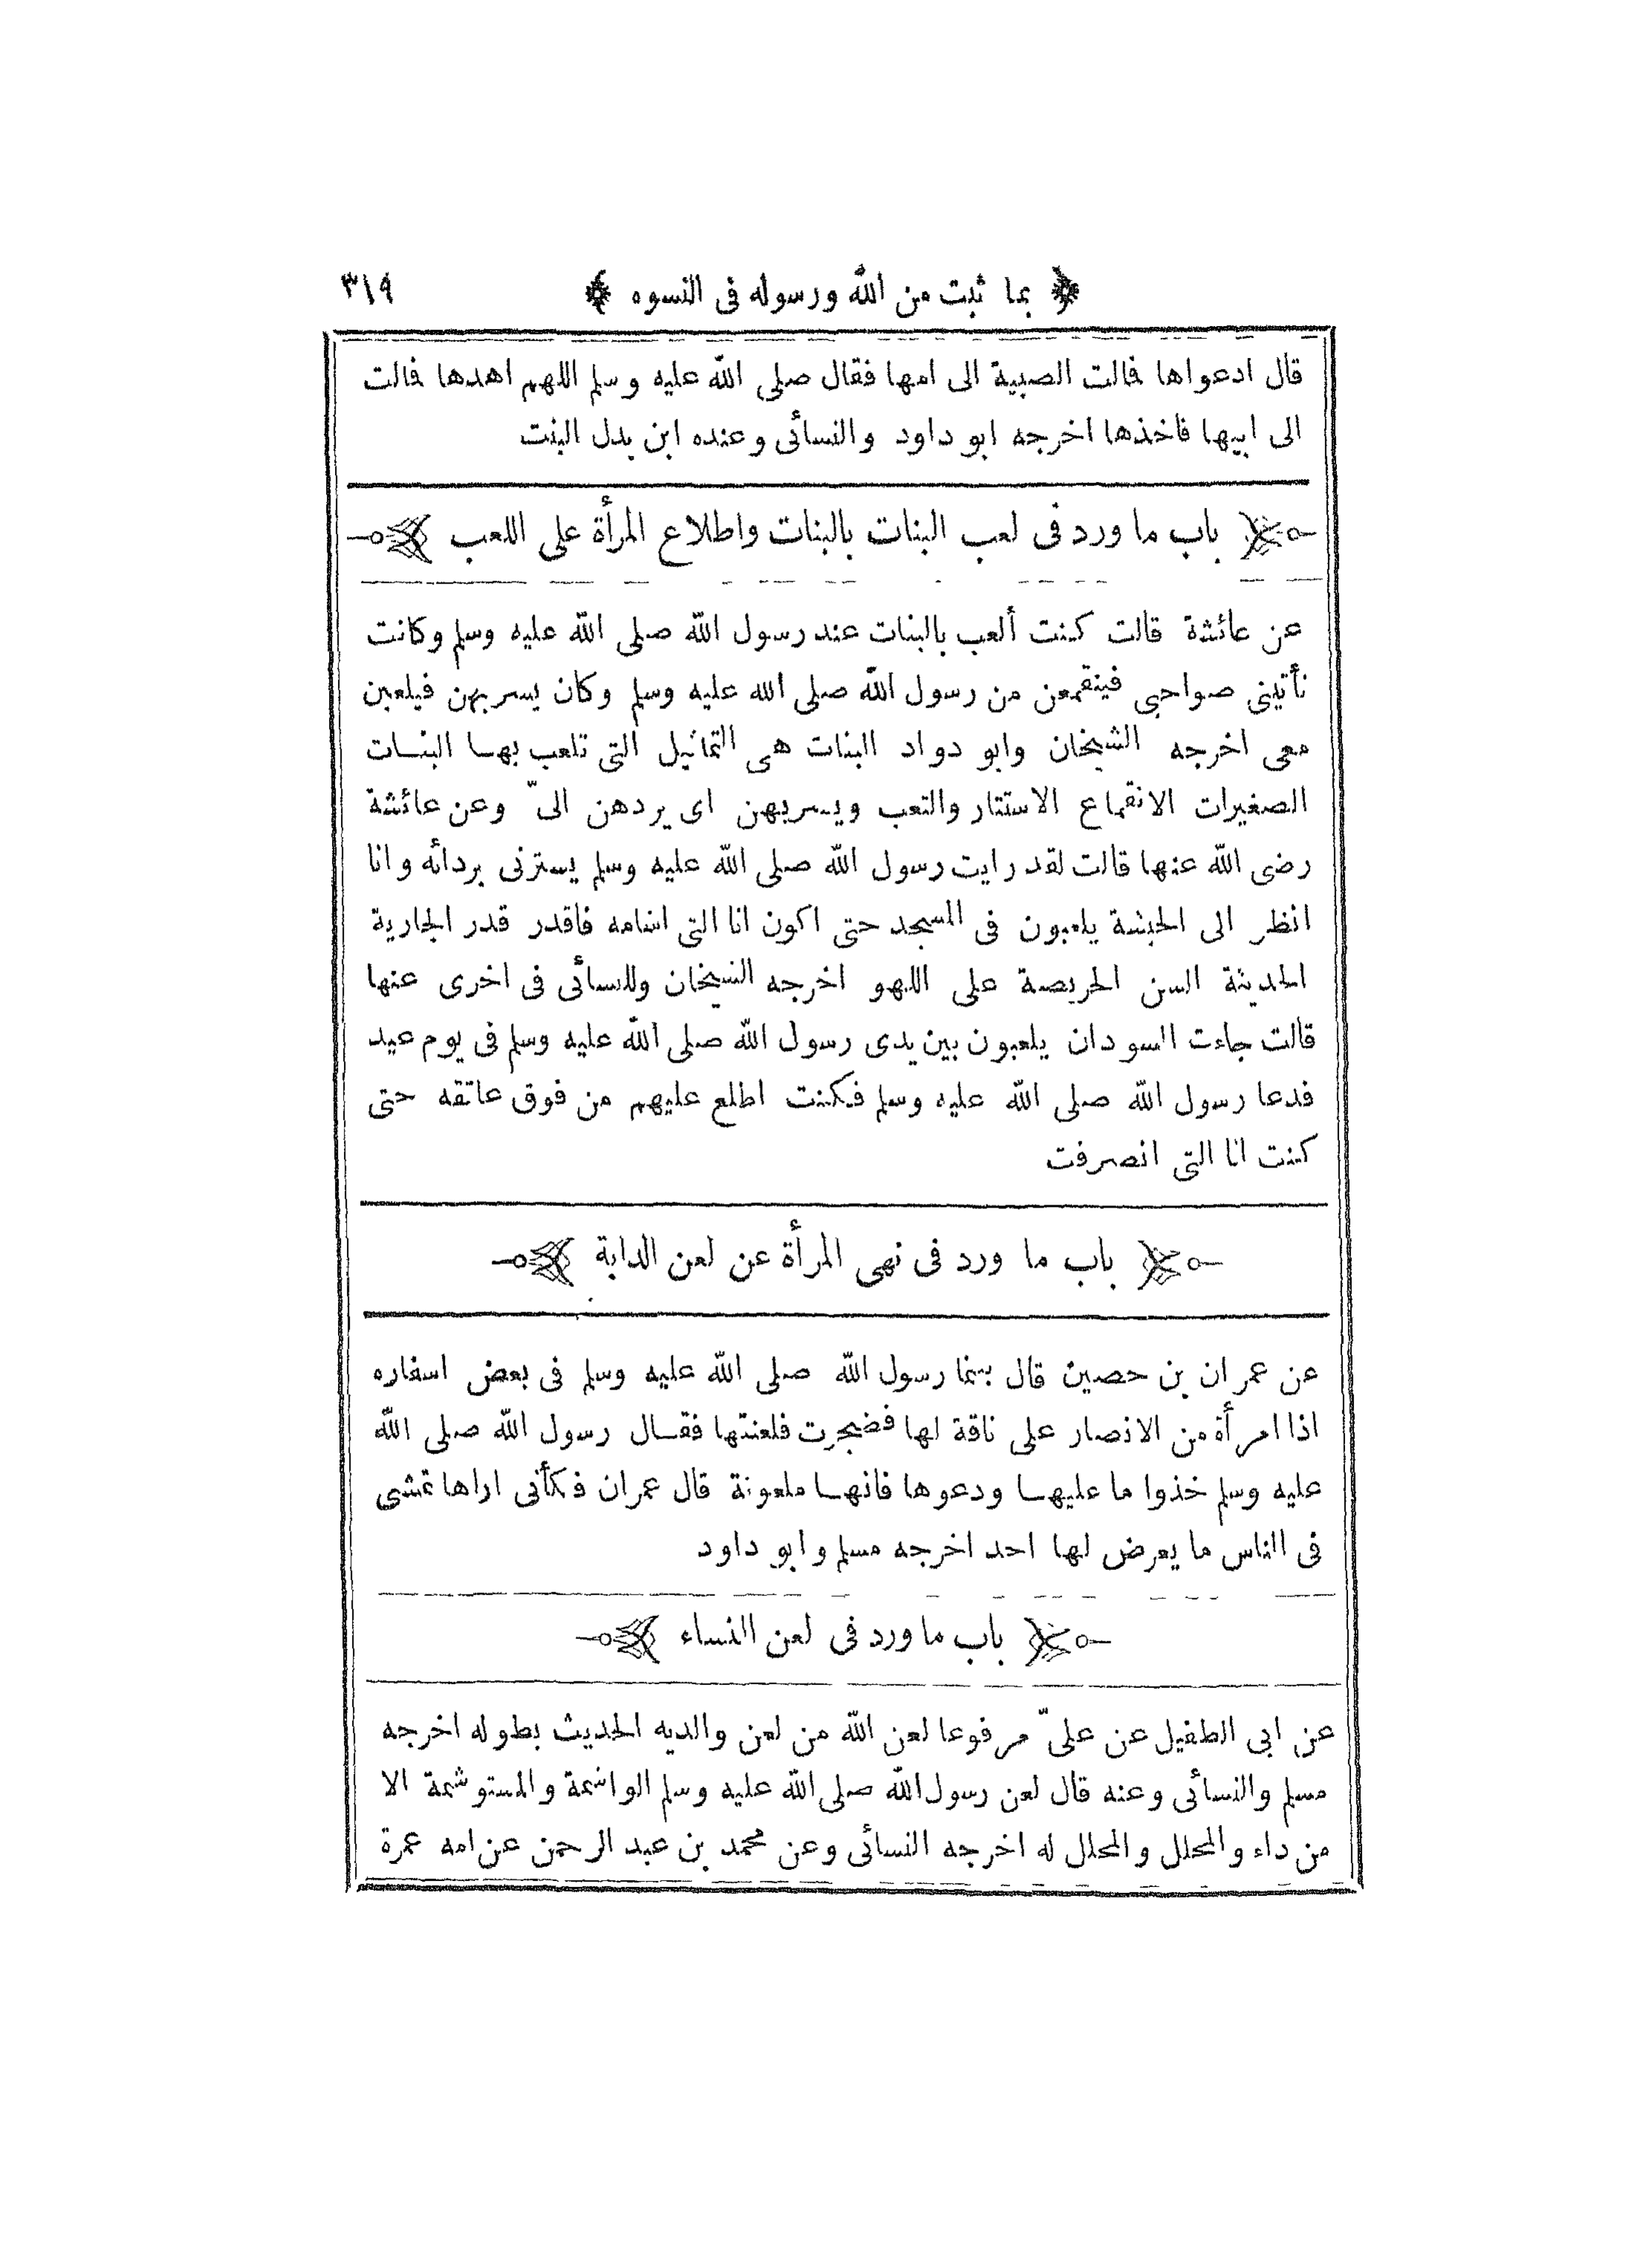 ﴿ بما ثبت من الله ورسوله فى النسوه ﴾ ٣١٩
قال ادعواها فالت الصبية الى امها فقال صلى الله عليه وسلم اللهم اهدها فالت
الى ابيها فاخذها اخرجه ابو داود والنسائى وعنده ابن بدل البنت
باب ما ورد فى لعب البنات بالبنات واطلاع المرأة على اللعب
عن عائشة قالت كنت ألعب بالبنات عند رسول الله صلى الله عليه وسلم وكانت
تأتينى صواحبى فينقمعن من رسول الله صلى الله عليه وسلم وكان يسربهن فيلعبن
معى اخرجه الشيخان وابو دواد البنات هى التماثيل التى تلعب بها البنات
الصغيرات الانقماع الاستتار والتعب ويسربهن اى يردهن الىّ وعن عائشة
رضى الله عنها قالت لقد رايت رسول الله صلى الله عليه وسلم يسترنى بردائه وانا
انظر الى الحبشة يلعبون فى المسجد حتى اكون انا التى اسامه فاقدر قدر الجارية
الحديثة السن الحريصة على اللهو اخرجه الشيخان وللنسائى فى اخرى عنها
قالت جاءت السودان يلعبون بين يدى رسول الله صلى الله عليه وسلم فى يوم عيد
فدعا رسول الله صلى الله عليه وسلم فكنت اطلع عليهم من فوق عاتقه حتى
كنت انا التى انصرفت
باب ما ورد فى نهى المرأة عن لعن الدابة
عن عمران بن حصين قال بينما رسول الله صلى الله عليه وسلم فى بعض اسفاره
اذا امرأة من الانصار على ناقة لها فضجرت فلعنتها فقال رسول الله صلى الله
عليه وسلم خذوا ما عليها ودعوها فانها ملعونة قال عمران فكأنى اراها تمشى
فى الناس ما يعرض لها احد اخرجه مسلم وابو داود
باب ما ورد فى لعن النساء
عن ابى الطفيل عن علىّ مرفوعا لعن الله من لعن والديه الحديث بطوله اخرجه
مسلم والنسائى وعنه قال لعن رسول الله صلى الله عليه وسلم الواشمة والمستوشمة الا
من داء والمحلل والمحلل له اخرجه النسائى وعن محمد بن عبد الرحمن عن امه عمرة